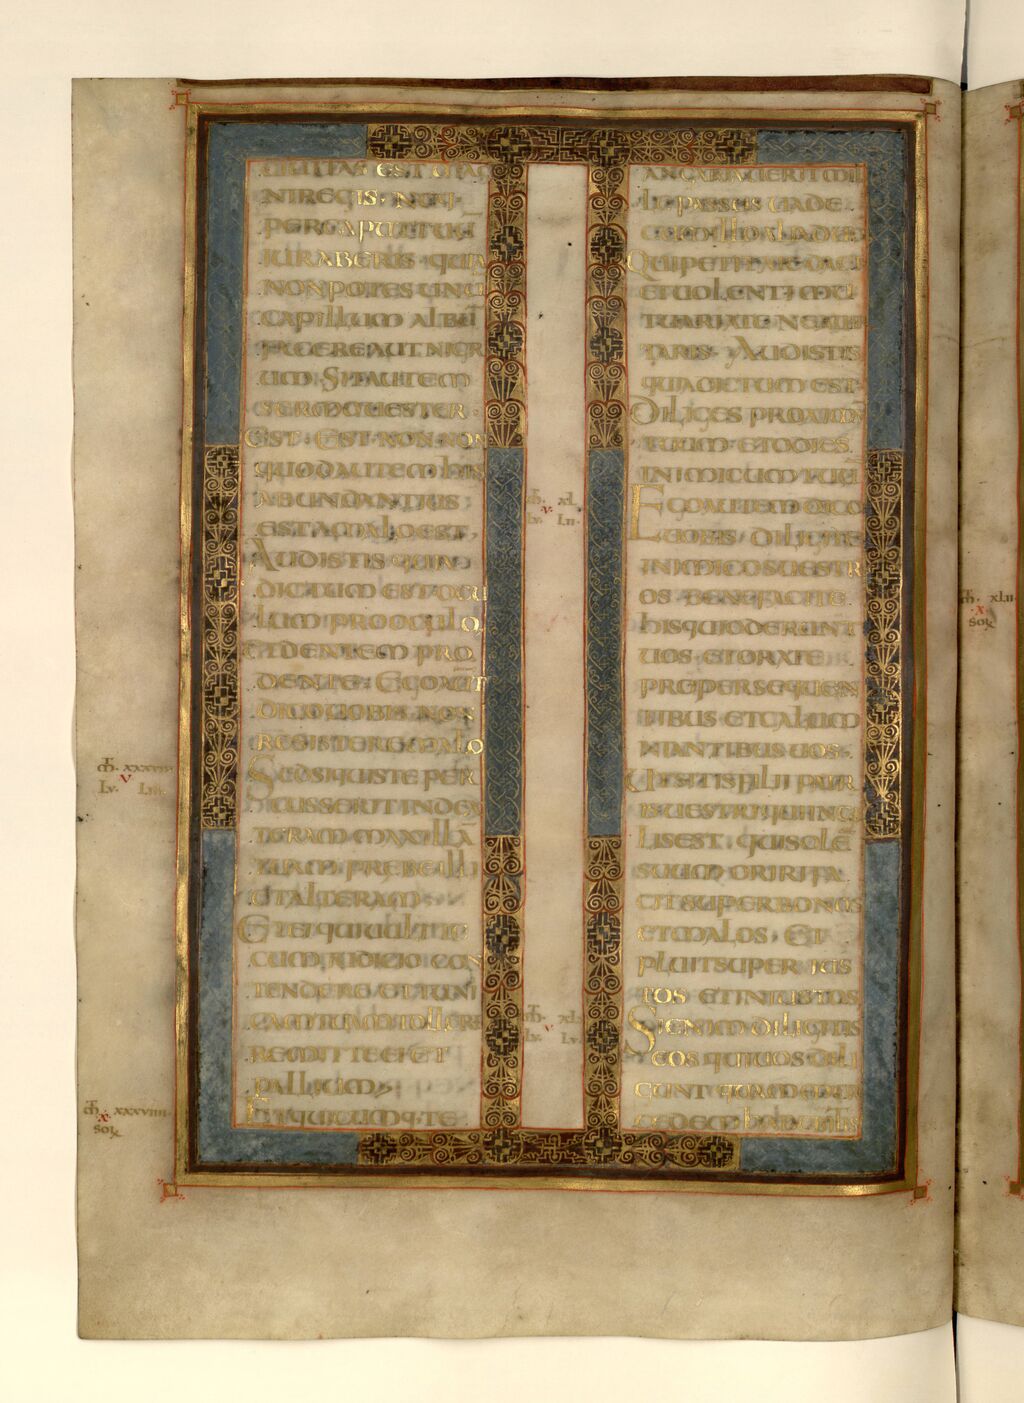 CIUITAS EST MAG
NI REGIS · NEQ·
PER CAPUT TUŪ
IURABERIS · QUIA
NON POTES UNŪ
CAPILLUM ALBŪ
FACERE AUT NIGR
UM · SIT AUTEM
SERMO UESTER ·
EST · EST · NON · NON
QUOD AUTEM HIS
ABUNDANTIUS
EST A MALO EST ·
AUDISTIS QUIA
DICTUM EST OCU
LUM PRO OCULO
ET DENTEM PRO
DENTE · EGO AUT
DICO UOBIS NON
RESISTERE MALO
SED SI QUIS TE PER
CUSSERIT IN DEX
TERAM MAXILLA
TUAM PREBE ILLI
ET ALTERAM ·
ET EI QUI UULT TE
CUM IUDICIO CON
TENDERE ET TUNI
CAM TUAM TOLLERE
REMITTE EI ET
PALLIUM ·
ET QUICUMQ· TE
ANGARIAUERIT MIL
LE PASSUS UADE
CUM ILLO ALIA DUO
QUI PETIT A TE DA EI
ET UOLENTI MU
TUARI A TE NE AUER
TARIS · AUDISTIS
QUIA DICTUM EST
DILIGES PROXIMŪ
TUUM · ET ODIES
INIMICUM TUŪ
EGO AUTEM DICO
UOBIS · DILIGITE
INIMICOS UESTR
OS · BENEFACITE
HIS QUI ODERUNT
UOS · ET ORATE
PRO PERSEQUEN
TIBUS ET CALUM
NIANTIBUS UOS ·
UT SITIS FILII PATR
IS UESTRI QUI IN CE
LIS EST · QUI SOLĒ
SUUM ORIRI FA
CIT SUPER BONOS
ET MALOS · ET
PLUIT SUPER IUS
TOS ET INIUSTOS
SI ENIM DILIGITIS
EOS QUI UOS DILI
GUNT QUAM MER
CEDEM HABEBITIS
M̄ · XL
V
LV · LII
M̄ · XXXVIII
V
LV · LIII
M̄ · XL
V
LV · L
M̄ · XXXVIIII
X
SOL
M̄ · XLII
X
SOL